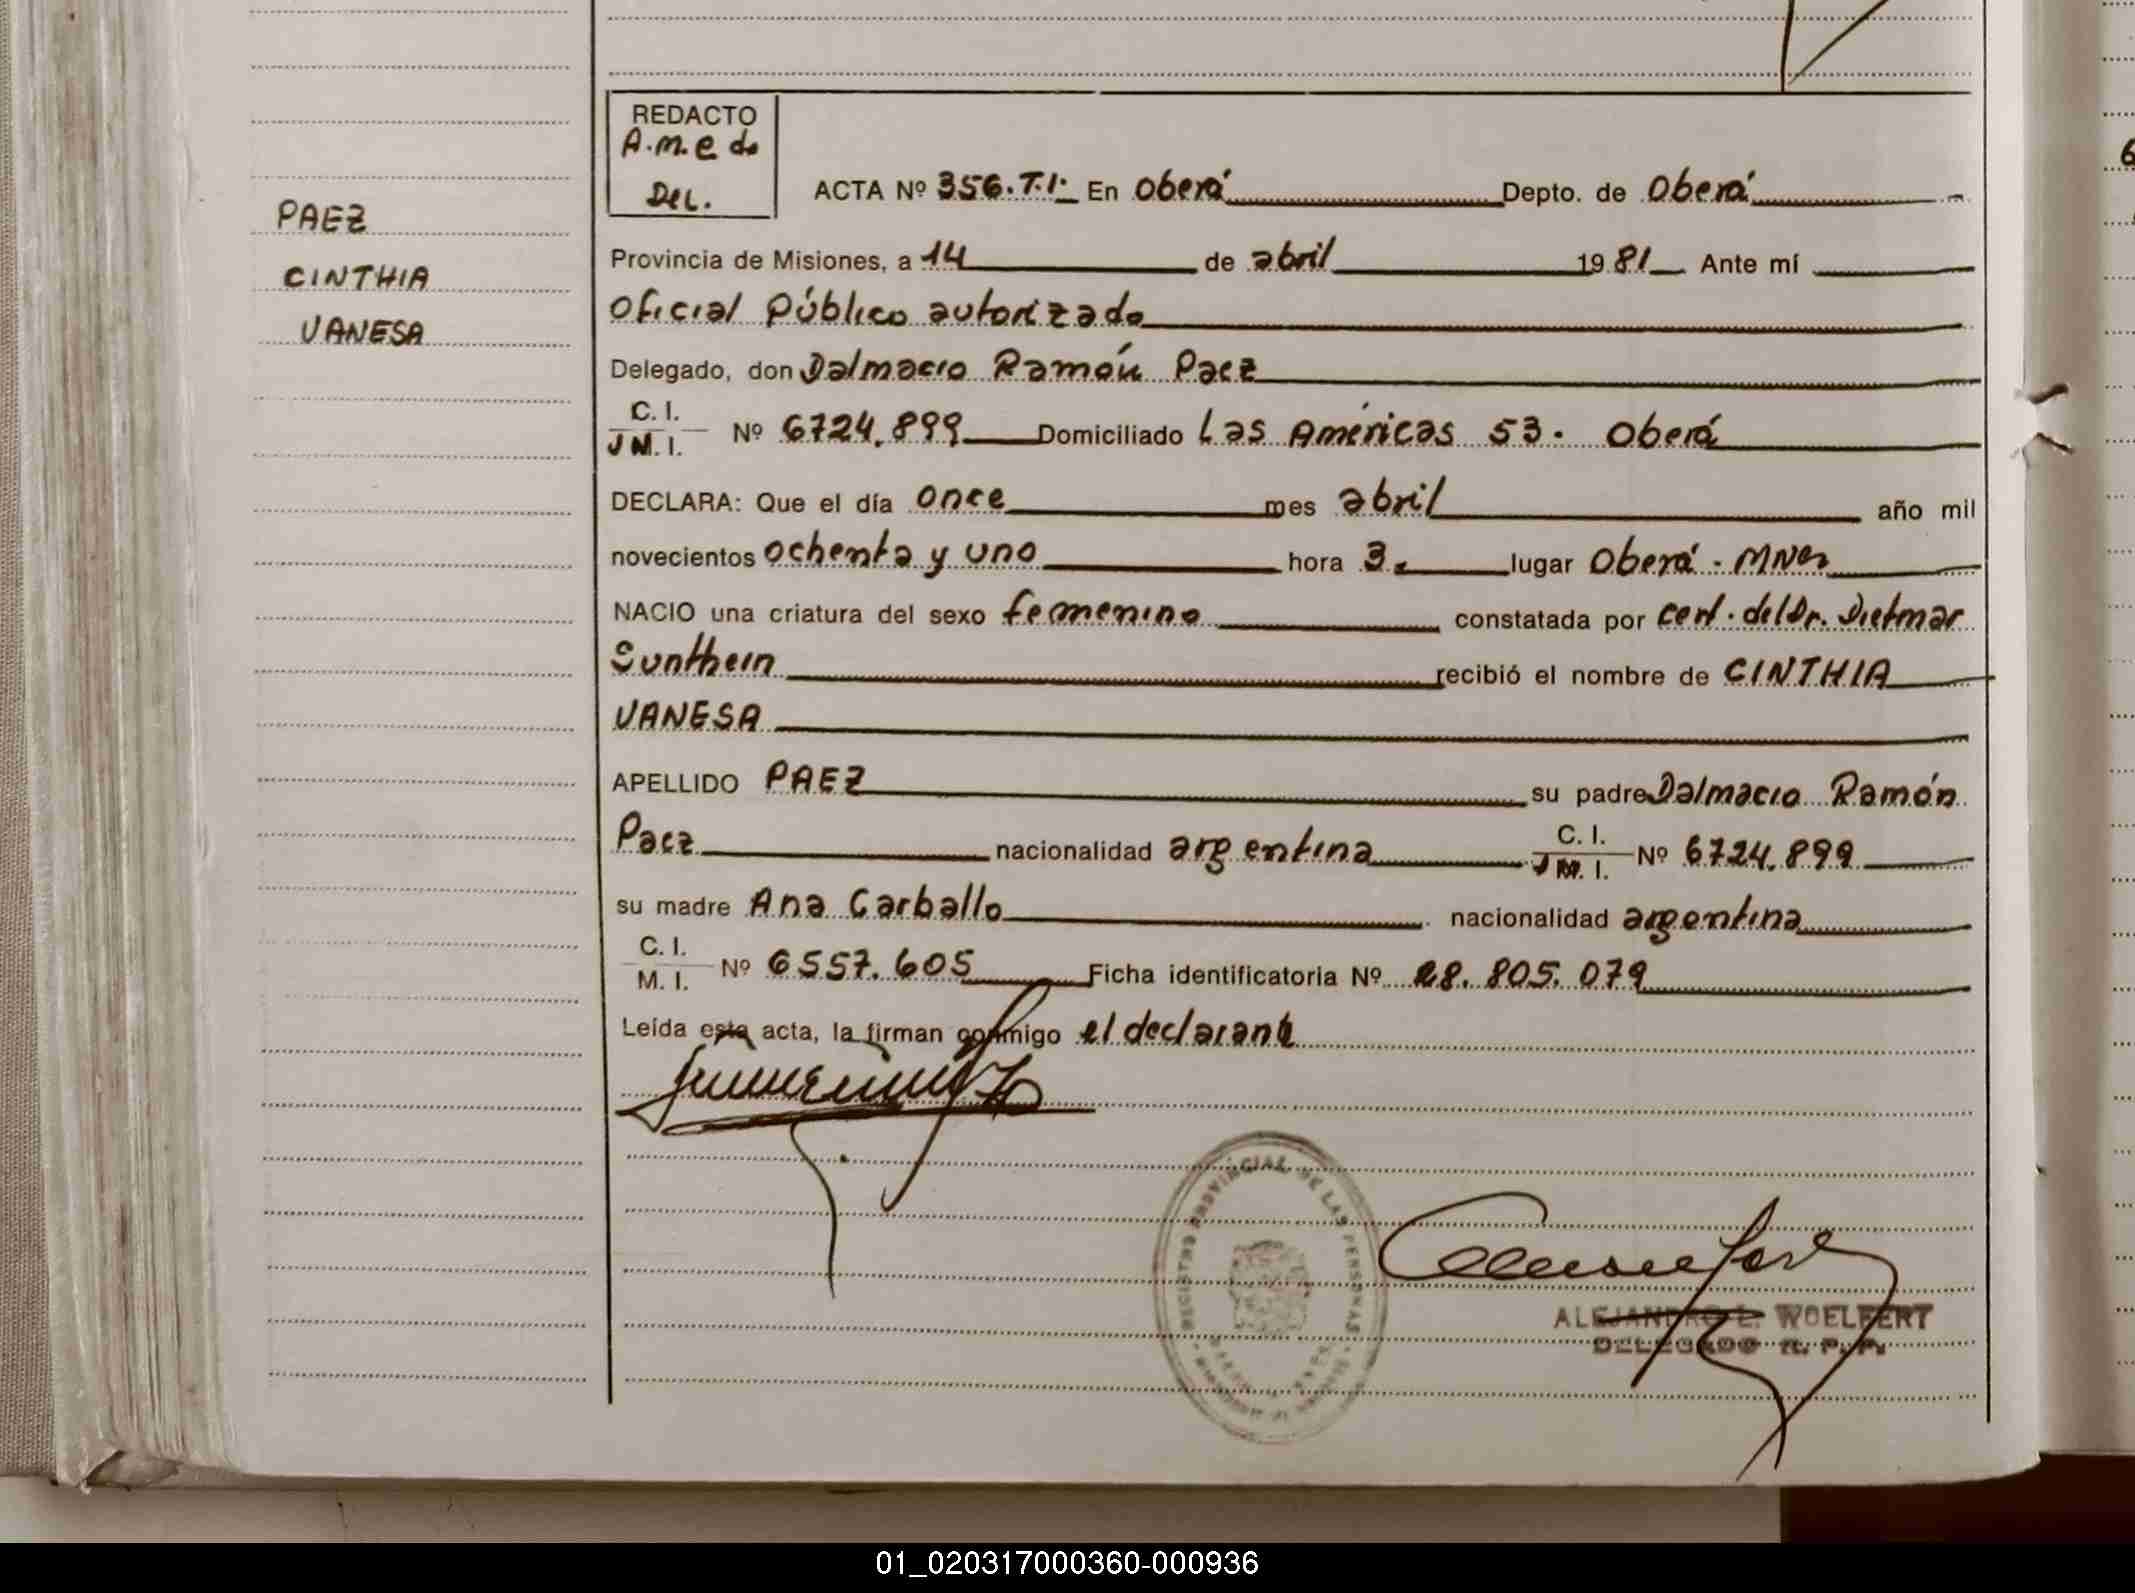 REDACTO
A.M.E do
Del.
ACTA Nº 356.T.I. En Oberá Depto. de Oberá
PAEZ
CINTHIA
VANESA
Provincia de Misiones, a 14 de abril 1981 Ante mí
Oficial Público autorizado
Delegado, don Dalmacio Ramón Paez
C. I.
M. I. Nº 6724.899 Domiciliado Las Américas 53. Oberá
DECLARA: Que el día once mes abril año mil
novecientos ochenta y uno hora 3. lugar Oberá - Mnes
NACIO una criatura del sexo femenino constatada por cert. del Dr. Dietmar
Sunthein recibió el nombre de CINTHIA
VANESA
APELLIDO PAEZ su padre Dalmacio Ramón
Paez nacionalidad argentina C. I. M. I. Nº 6724.899
su madre Ana Carballo nacionalidad argentina
C. I.
M. I. Nº 6557.605 Ficha identificatoria Nº 28.805.079
Leída esta acta, la firman conmigo el declarante
REGISTRO PROVINCIAL DE LAS PERSONAS
ALEJANDRO L. WOELFERT
DELEGADO R. P. P.
01_020317000360-000936